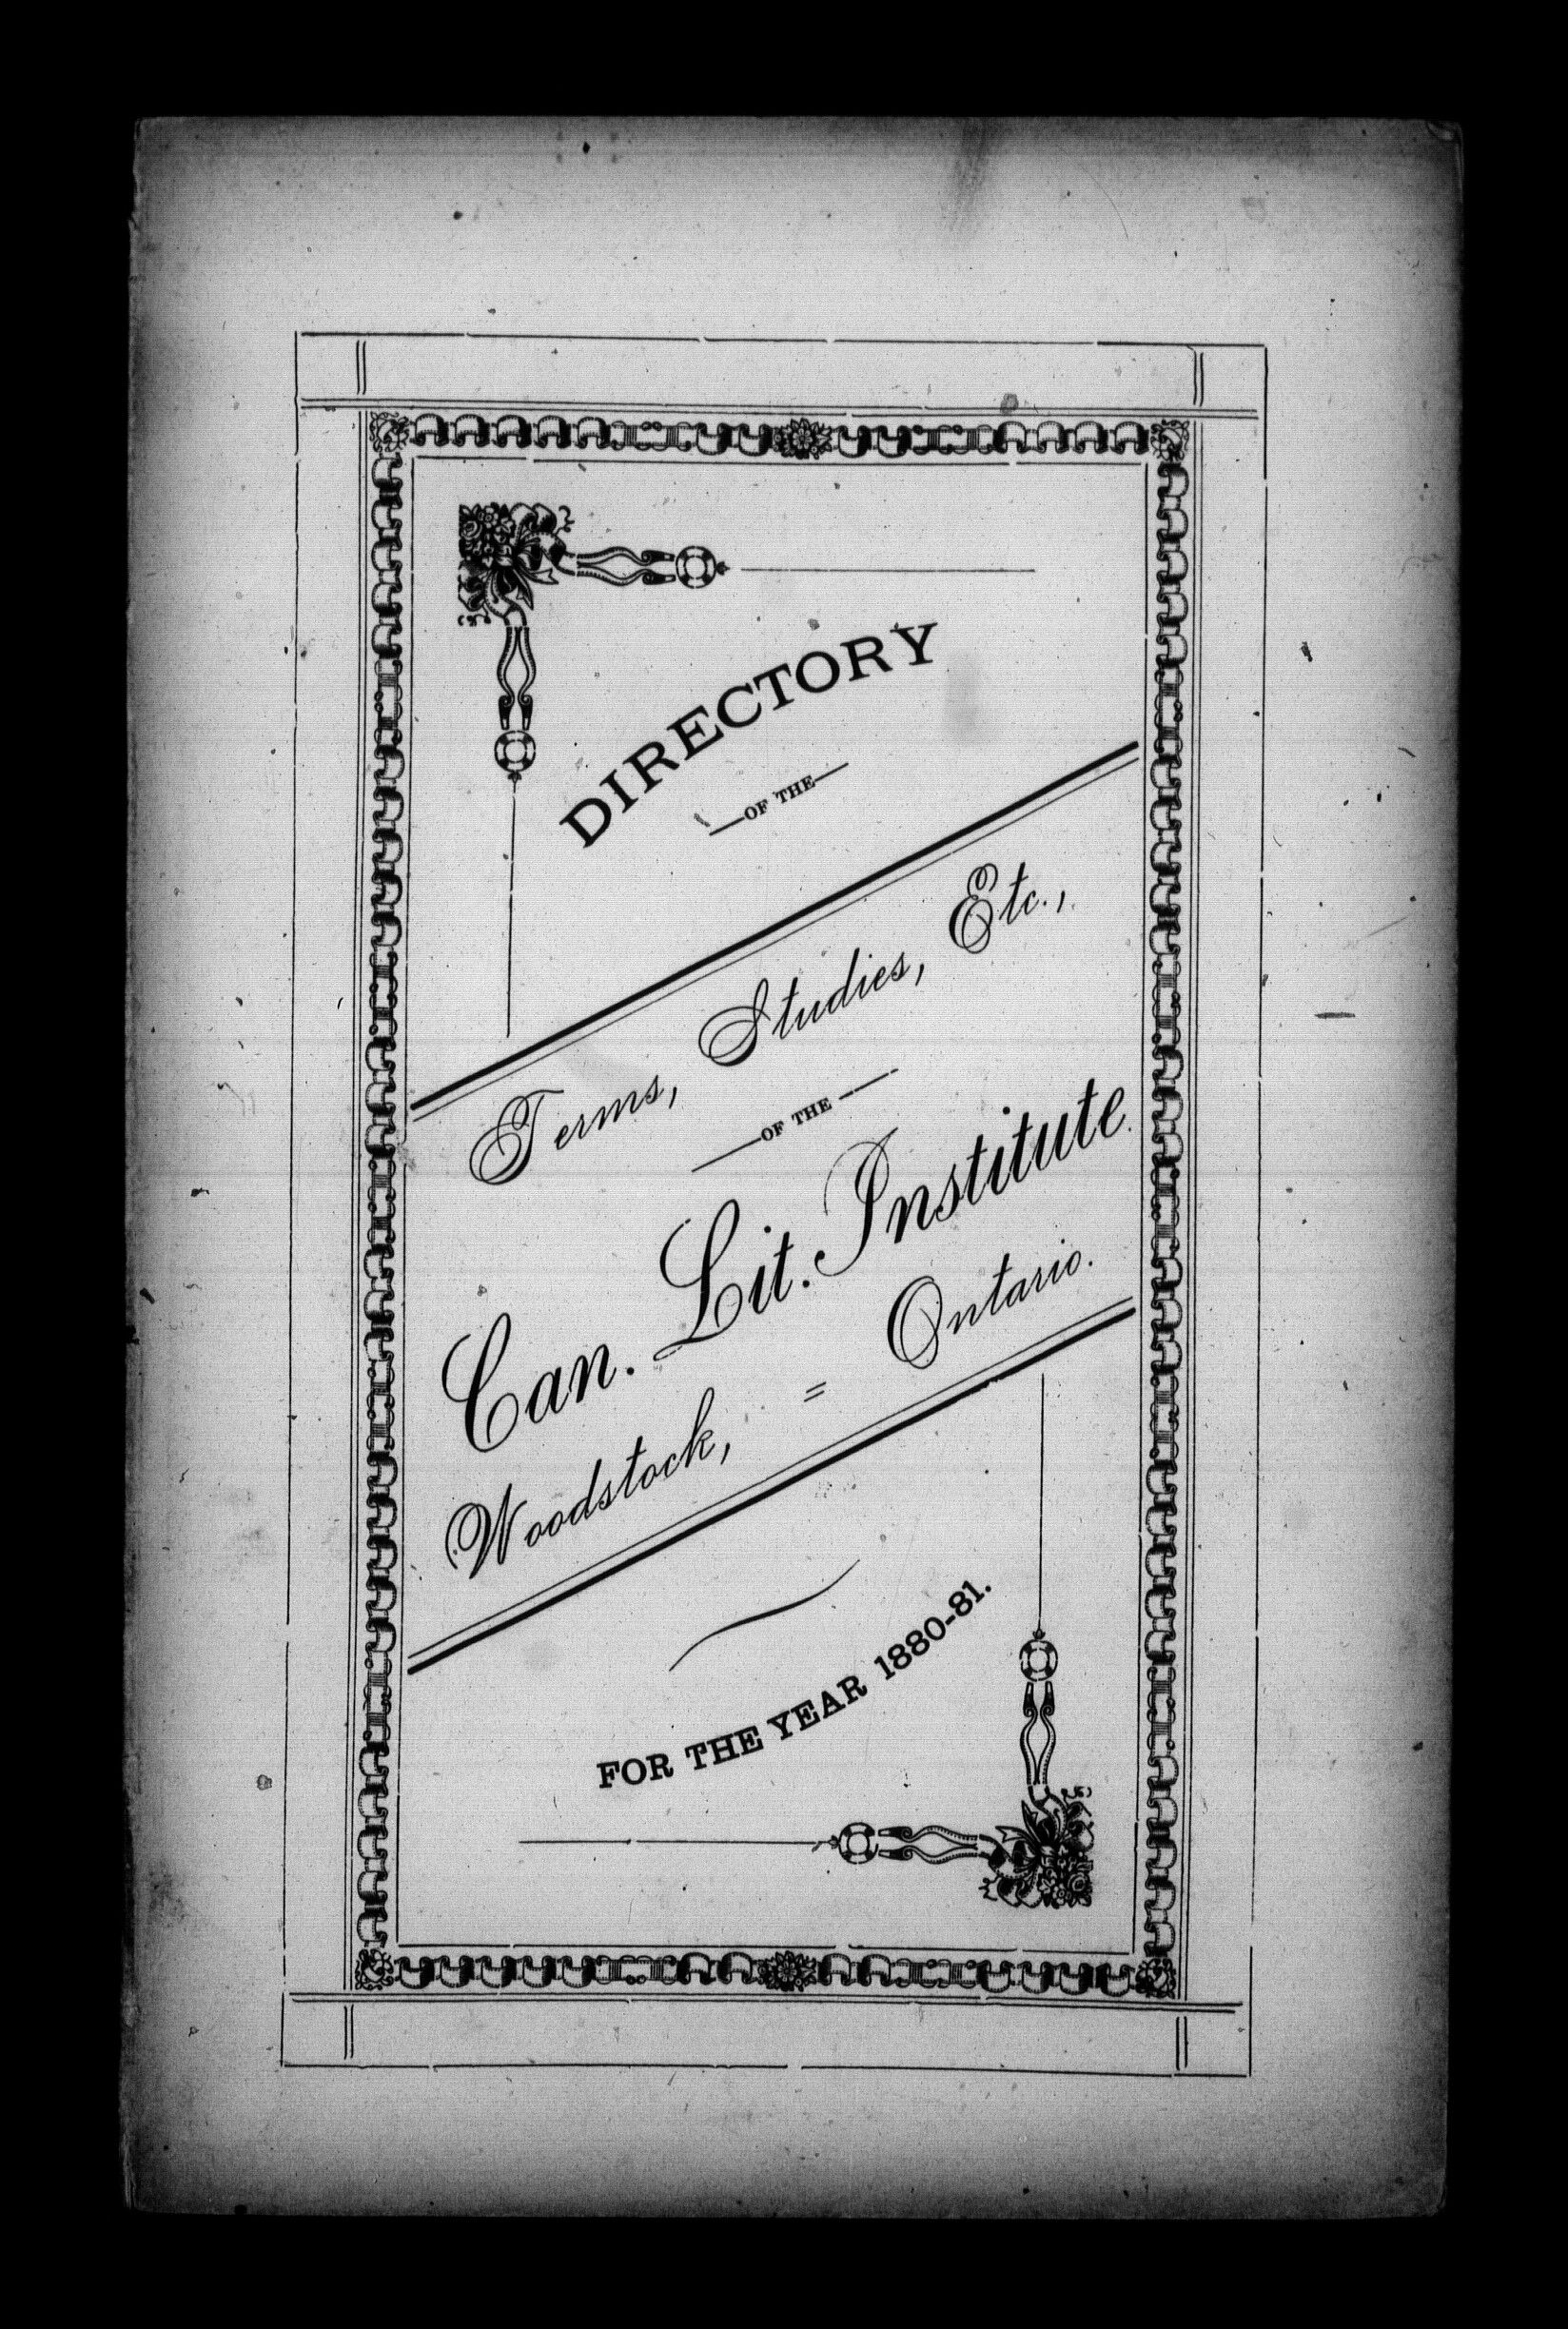 DIRECTORY
—OF THE—
Terms, Studies, Etc.,
—OF THE—
Can. Lit. Institute
Woodstock, = Ontario.
FOR THE YEAR 1880-81.